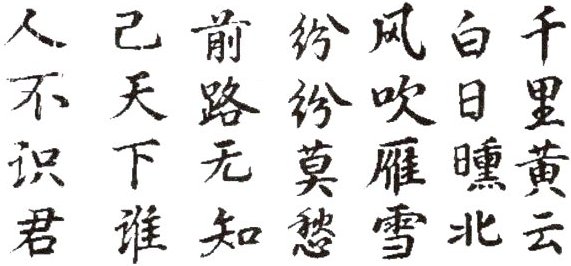 千里黄云
白日曛北
风吹雁雪
纷纷莫愁
前路无知
己天下谁
人不识君